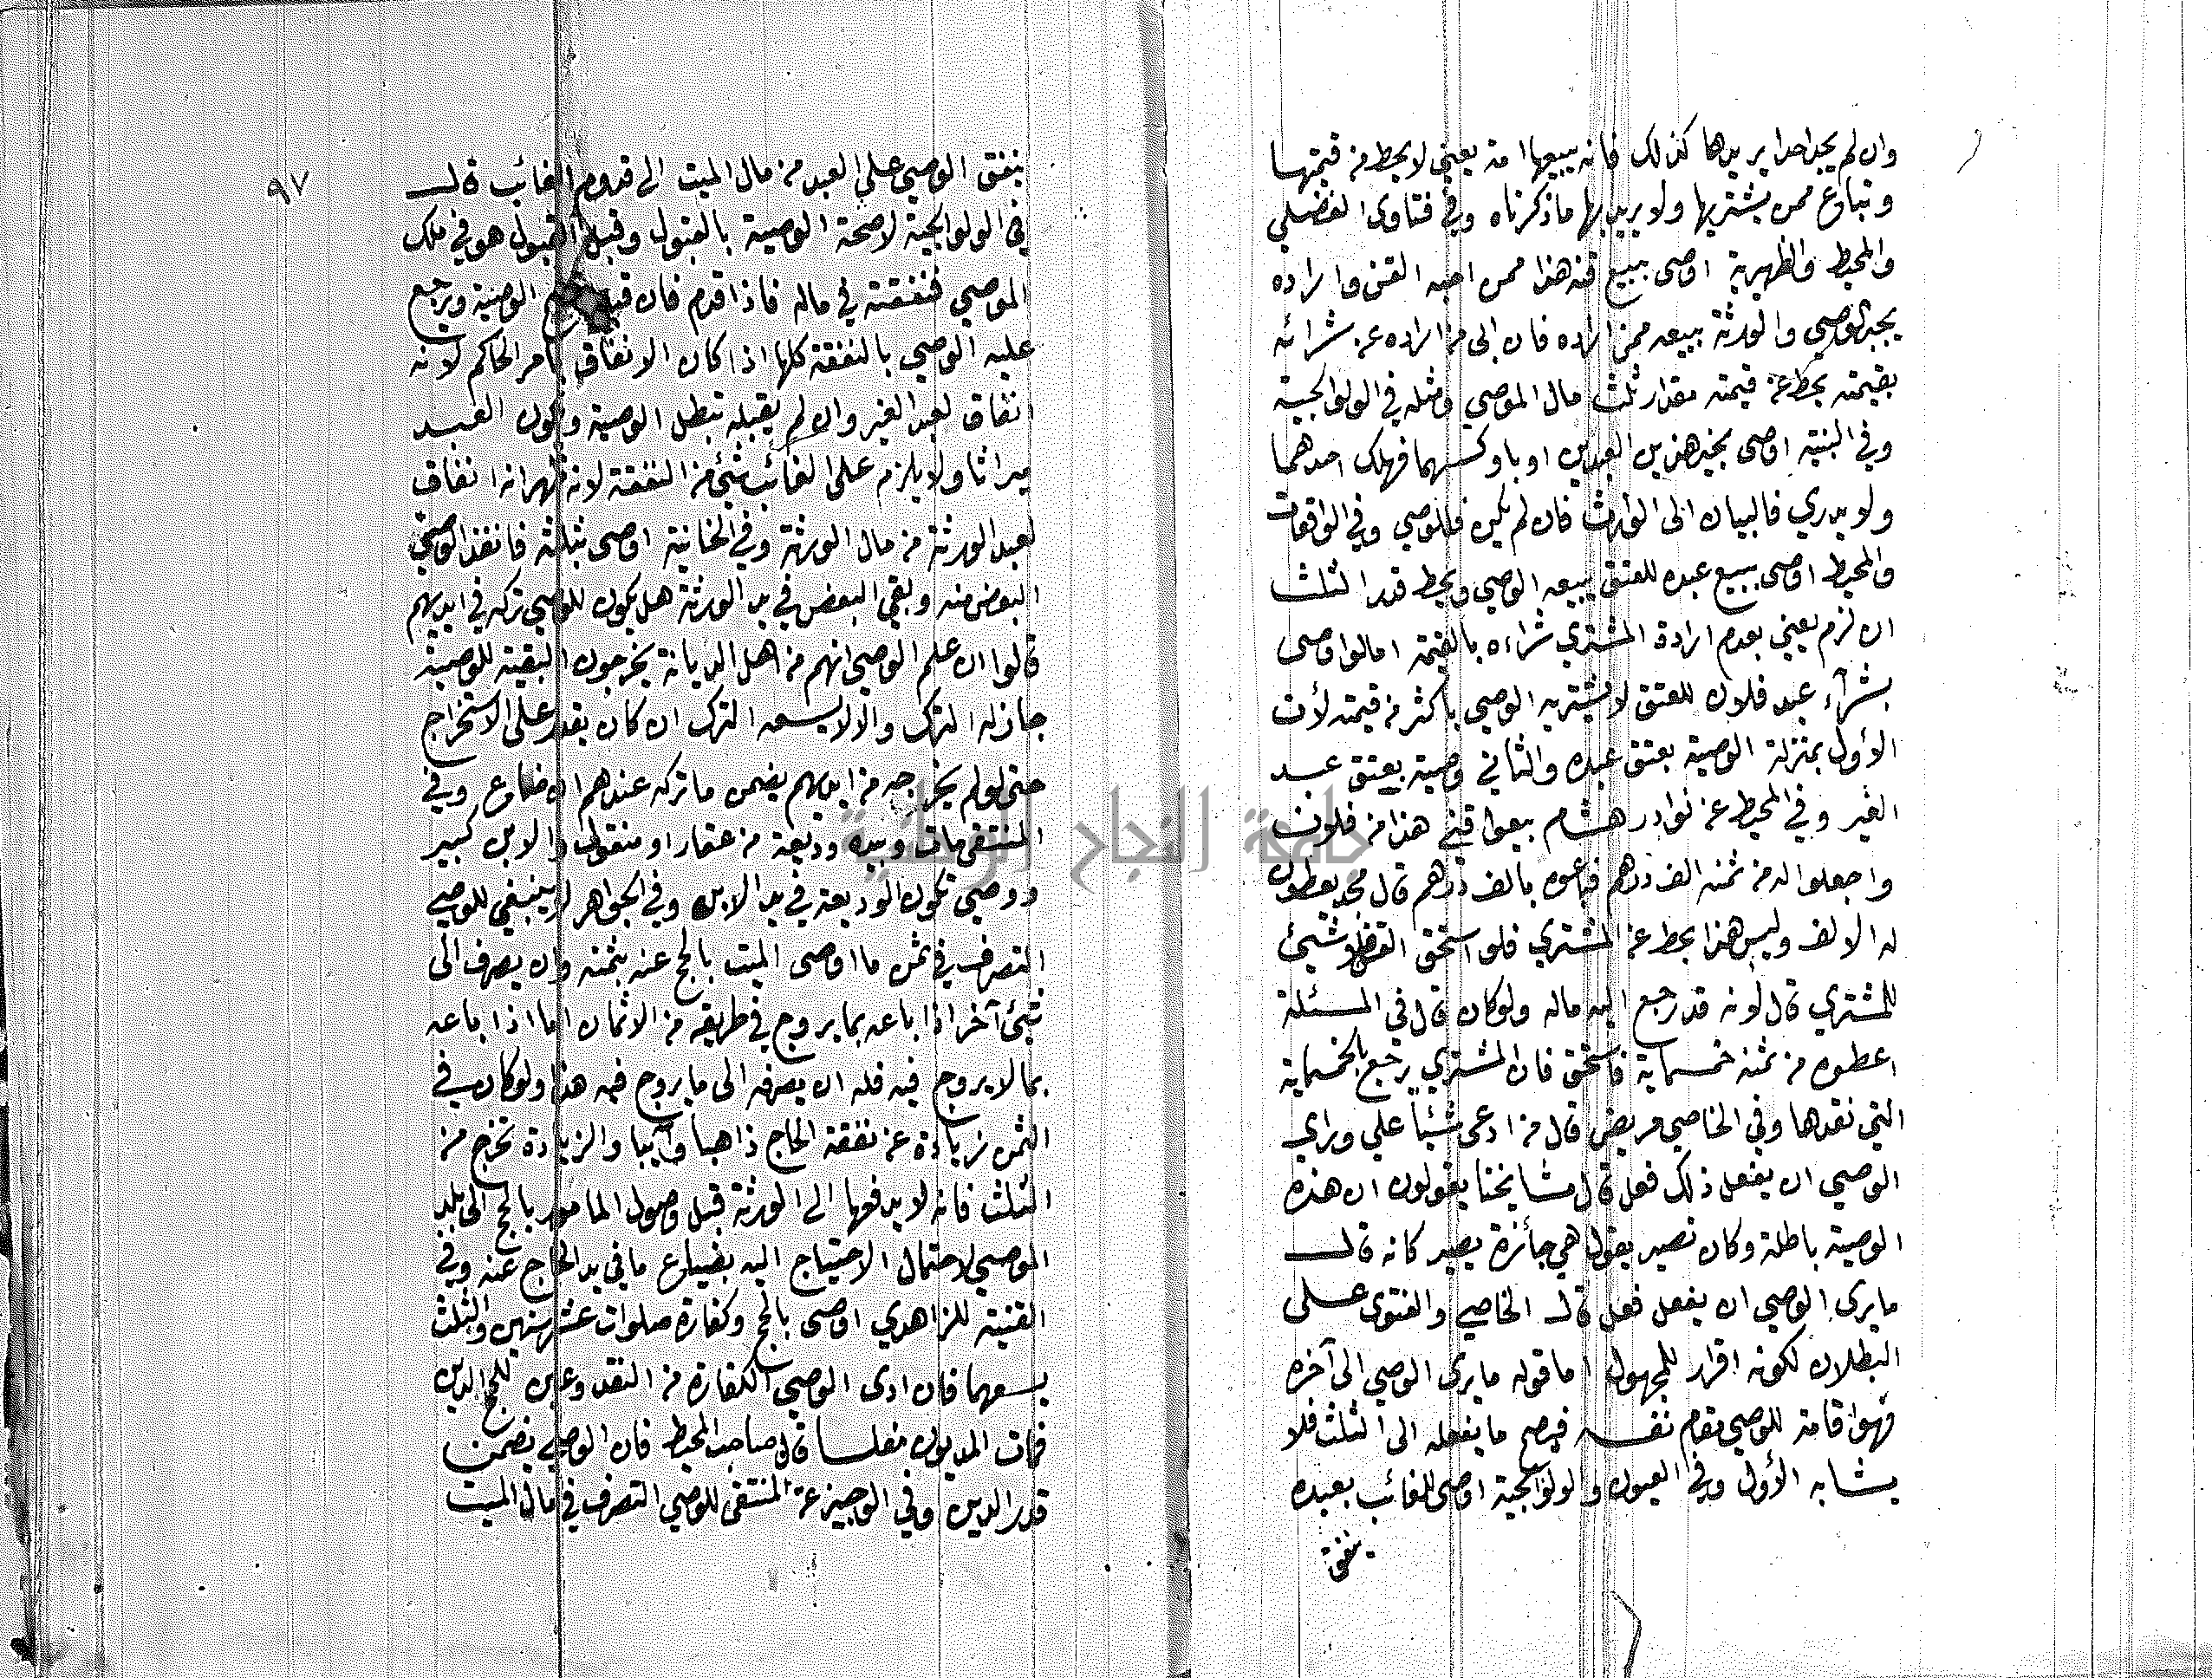 وان لم يجد احدا يريدها كذلك فانه يبيعها امة يعني لا يحط من قيمتها
وتباع ممن يشتريها ولا يريد بها ما ذكرناه وفي فتاوى الفضلي
والمحيط والظهيرية اوصى ببيع قنه هذا ممن احبه القن واراده
يجبر الوصي والورثة ببيعه ممن اراده فان ابى من اراده عن شرائه
بقيمته يحط عن قيمته مقدار ثلث مال الموصي ومثله في الولوالجية
وفي اوصى بخير هذين العبدين او باوكسهما فهلك احدهما
ولا يدري فالبيان الى الوارث فان لم يكن فللوصي وفي الواقعات
والمحيط اوصى ببيع عبده للعتق يبيعه الوصي ويحط قدر الثلث
ان لزم يعني بعدم ارادة المشتري شراءه بالقيمة اما لو اوصى
بشرآء عبد فلان للعتق لا يشتريه الوصي باكثر من قيمته لأن
الأول بمنزلة الوصية بعتق عبده والثاني وصية بعتق عبد
الغير وفي المحيط عن نوادر هشام بيعوا قني هذا من فلان
واجعلوا له من ثمنه الف درهم فباعوه بالف درهم قال محمد يعطون
له الالف وليس هذا بحط عن المشتري فلو استحق القن لا شيئ
للمشتري قال لأنه قد رجع اليه ماله ولو كان قال في المسئلة
اعطوه من ثمنه خمسماية فاستحق فان المشتري يرجع بالخمسماية
التي نقدها وفي الخاصي مريض قال من ادعى شيئاً علي وراى
الوصي ان يفعل ذلك فعل قال مشايخنا يقولون ان هذه
الوصية باطلة وكان نصير يقول هي جائزة يصير كانه قال
ما يرى الوصي ان يفعل فعل قال الخاصي والفتوى على
البطلان لكونه اقرار للمجهول اما قوله ما يرى الوصي الى آخره
فهو اقامة للوصي مقام نفسه فيصح ما يفعله الى الثلث فلا
يشابه الأول وفي العيون والولوالجية اوصى للغائب بعبده
ينفق
٩٧
ينفق الوصي على العبد من مال الميت الى قدوم الغائب قال
في الولوالجية لا صحة الوصية بالقبول وقبل القبول هو في ملك
الموصي فنفقته في ماله فاذا قدم فان الوصية ويرجع
عليه الوصي بالنفقة كلها اذا كان الانفاق بامر الحاكم لانه
انفاق لعبد الغير وان لم يقبله تبطل الوصية ويكون العبد
ميراثا ولا يلزم على الغائب شيئ من النفقة لانه ظهر انه انفاق
لعبد الورثة من مال الورثة وفي الخانية اوصى بثلثه فانفذ الوصي
البعض منه وبقي البعض في يد الورثة هل يكون للوصي تركه في ايديهم
قالوا ان علم الوصي انهم من اهل الديانة يخرجون البقية للوصية
جاز له الترك والا لا يسعه الترك ان كان يقدر على الاستخراج
حتى لو لم يخرجه من ايديهم يضمن ما تركه عندهم ان ضاع وفي
المنتقى مات وبيده وديعة من عقار او منقول والابن كبير
ووصي تكون الوديعة في يد الابن وفي الجواهر لا ينبغي للوصي
التصرف في ثمن ما اوصى الميت بالحج عنه بثمنه وان يصرف الى
شيئ آخر اذا باعه بما يروج في طريقه من الاثمان اما اذا باعه
بما لا يروج فيه فله ان يصرفه الى ما يروج فيه هذا ولو كان في
الثمن زيادة عن نفقة الحاج ذاهبا وآيبا والزيادة تخرج من
الثلث فانه لا يدفعها الى الورثة قبل وصول المامور بالحج الى بلد
الموصي لاحتمال الاحتياج اليه بضياع ما في يد الحاج عنه وفي
القنية للزاهدي اوصى بالحج وكفارة صلوات عشر سنين والثلث
يسعهما فان ادى الوصي الكفارة من النقد وعين للحج الدين
فمات المديون مفلسا قال صاحب المحيط فان الوصي يضمن
قدر الدين وفي الوجيز عن المنتقى للوصي التصرف في مال الميت
جامعة النجاح الوطنية